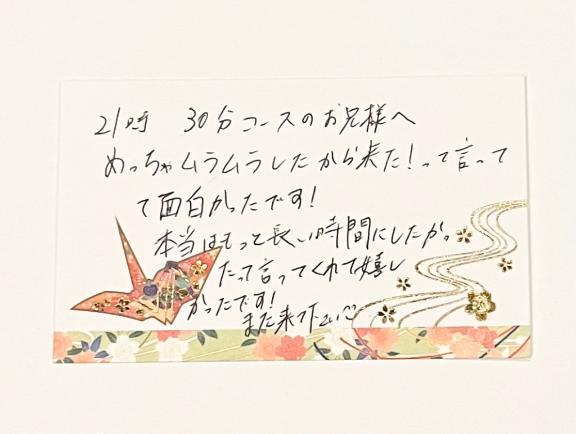 21時 30分コースのお兄様へ
めっちゃムラムラしたから来た!って言って
て面白かったです!
本当はもっと長い時間にしたかっ
たって言ってくれて嬉し
かったです!
また来て下さい♡